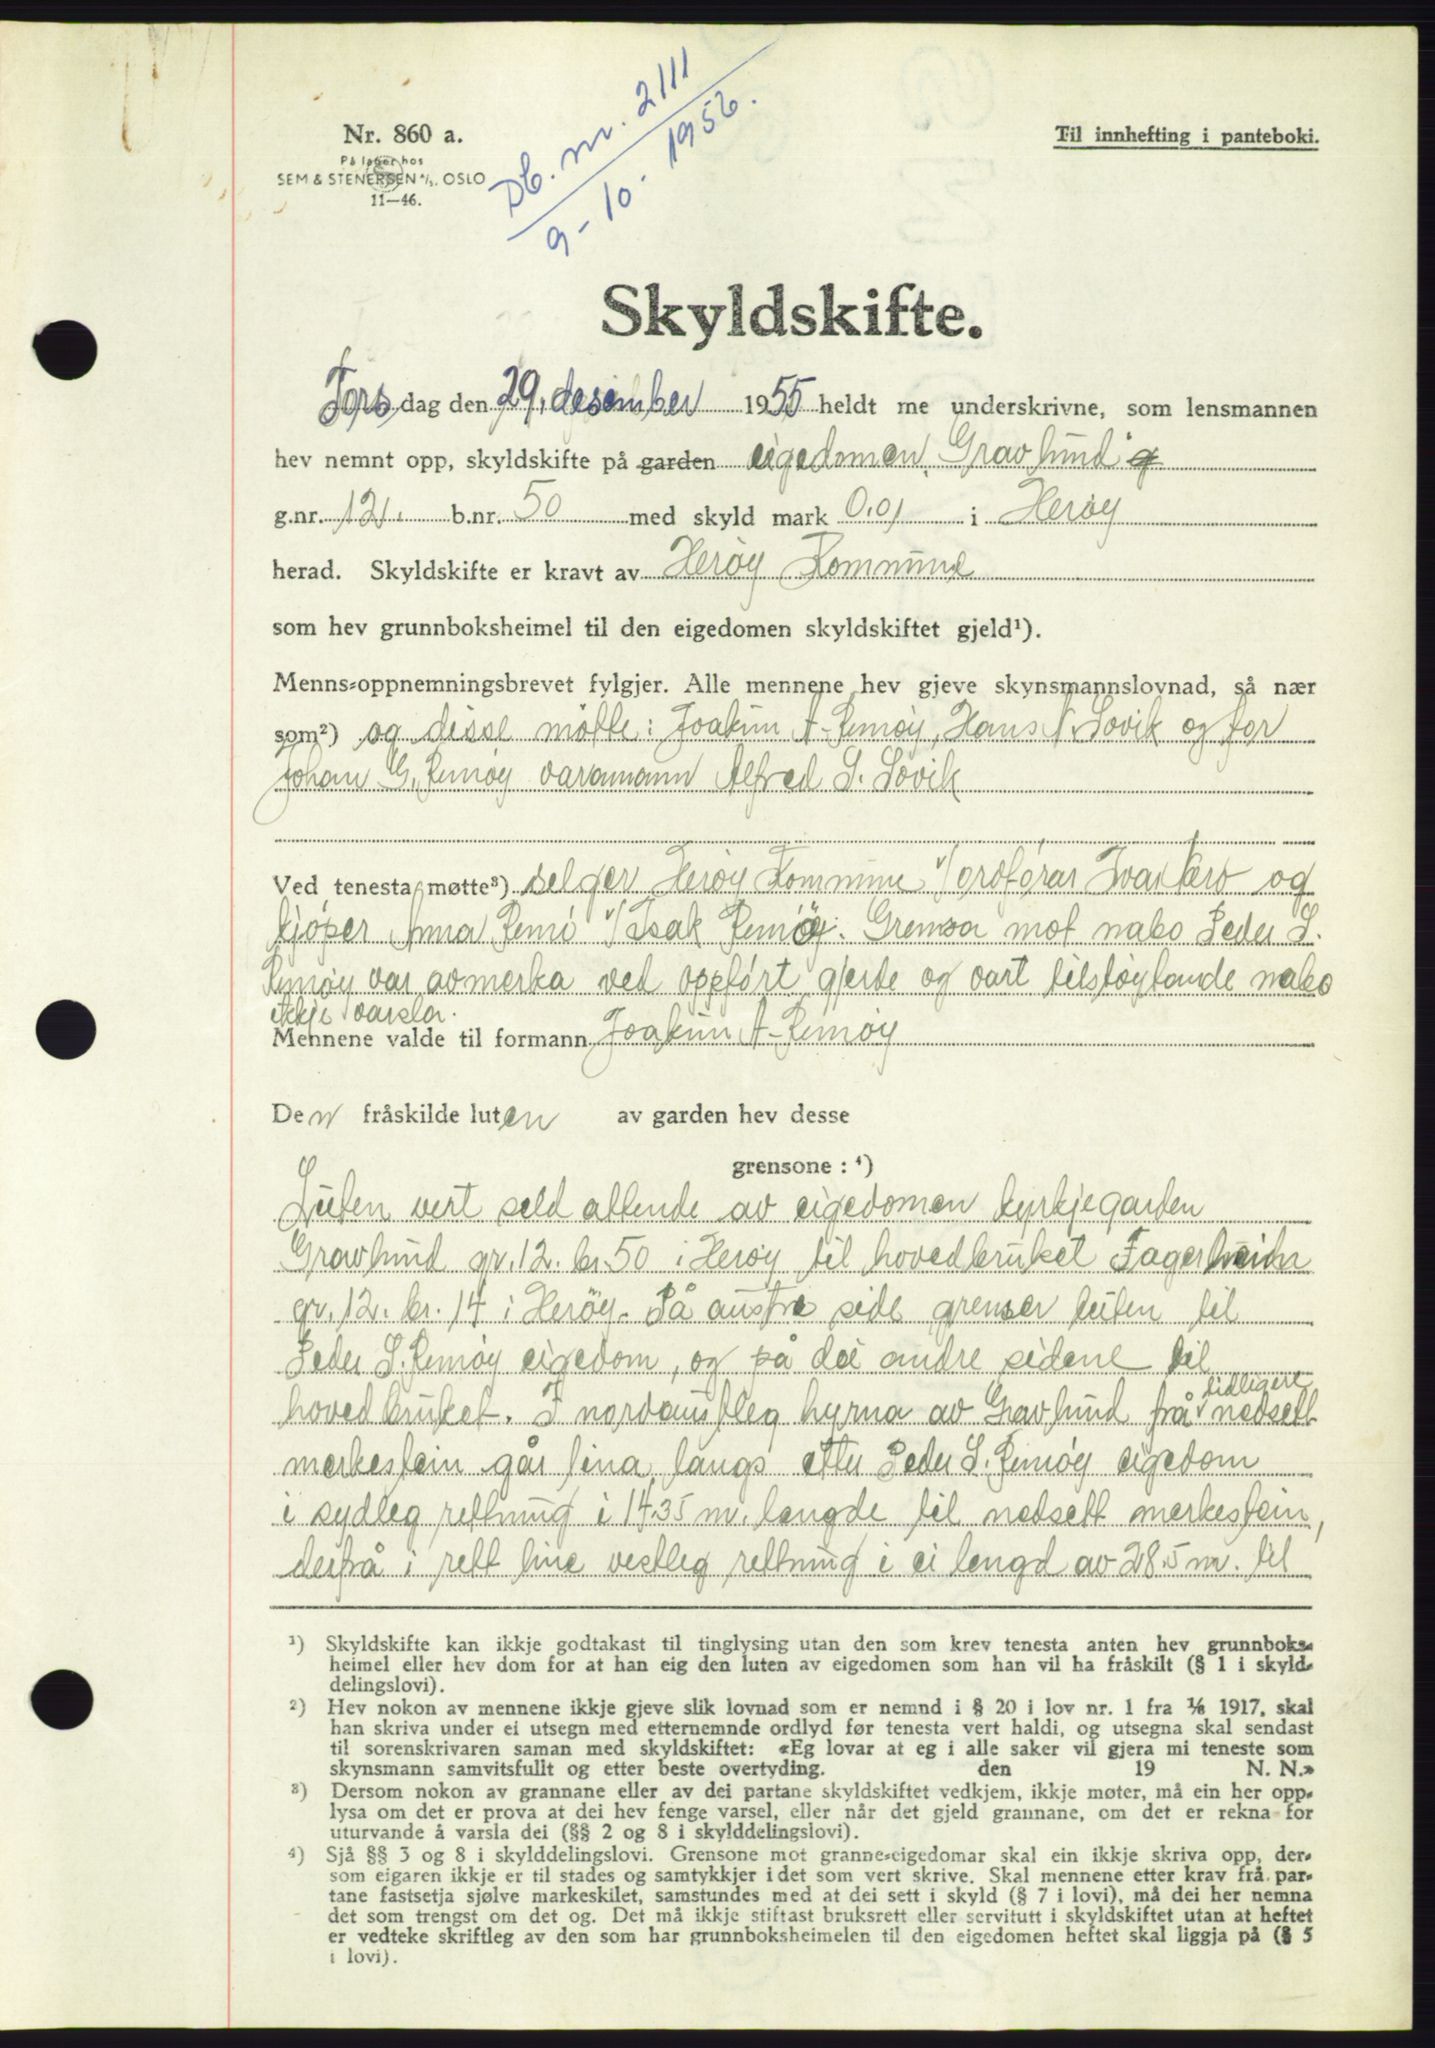 Db. nr. 2111
9-10-1956.
Nr. 860 a.
På lager hos
SEM & STENERSEN A/S. OSLO
11—46.
Til innhefting i panteboki.
Skyldskifte.
Torsdag den 29. desember 1955 heldt me underskrivne, som lensmannen
hev nemnt opp, skyldskifte på garden eigedomen Gravlund
g.nr. 12. b.nr. 50 med skyld mark 0.01 i Herøy
herad. Skyldskifte er kravt av Herøy Kommune
som hev grunnboksheimel til den eigedomen skyldskiftet gjeld¹).
Menns-oppnemningsbrevet fylgjer. Alle mennene hev gjeve skynsmannslovnad, så nær
som²) og disse møtte: Joakim A. Remøy, Hans N. Sovik og for
Johan G. Remøy varamann Alfred S. Søvik
Ved tenesta møtte³) selger Herøy Kommune v/ordførar Ivar og
kjøper Anna Remø v/Isak Remøy. Grensa mot nabo Peder S.
Remøy var avmerka ved oppført gjerde og vart tilstøytande nabo
ikkje varsla.
Mennene valde til formann Joakim A. Remøy
Den fråskilde luten av garden hev desse
grensone: ⁴)
Luten vert seld attende av eigedomen kyrkjegarden
Gravlund gr. 12. br. 50 i Herøy til hovedbruket Fagerheim
gr. 12. br. 14 i Herøy. På austre side grenser luten til
Peder S. Remøy eigedom, og på dei andre sidene til
hovedbruket. I nordaustleg hyrna av Gravlund frå tidligere nedsett
merkestein går lina langs etter Peder S. Remøy eigedom
i sydleg rettning i 14.35 m. lengde til nedsett merkestein,
derfrå i rett line vestleg rettning i ei lengd av 28.5 m. til
¹) Skyldskifte kan ikkje godtakast til tinglysing utan den som krev tenesta anten hev grunnboks-
heimel eller hev dom for at han eig den luten av eigedomen som han vil ha fråskilt (§ 1 i skyld-
delingslovi).
²) Hev nokon av mennene ikkje gjeve slik lovnad som er nemnd i § 20 i lov nr. 1 fra 1/8 1917, skal
han skriva under ei utsegn med etternemnde ordlyd før tenesta vert haldi, og utsegna skal sendast
til sorenskrivaren saman med skyldskiftet: «Eg lovar at eg i alle saker vil gjera mi teneste som
skynsmann samvitsfullt og etter beste overtyding. den 19 N. N.»
³) Dersom nokon av grannane eller av dei partane skyldskiftet vedkjem, ikkje møter, må ein her opp-
lysa om det er prova at dei hev fenge varsel, eller når det gjeld grannane, om det er rekna for
uturvande å varsla dei (§§ 2 og 8 i skylddelingslovi).
⁴) Sjå §§ 3 og 8 i skylddelingslovi. Grensone mot granne-eigedomar skal ein ikkje skriva opp, der-
som eigaren ikkje er til stades og samtykkjer i det som vert skrive. Skal mennene etter krav frå par-
tane fastsetja sjølve markeskilet, samstundes med at dei sett i skyld (§ 7 i lovi), må dei her nemna
det som trengst om det og. Det må ikkje stiftast bruksrett eller servitutt i skyldskiftet utan at heftet
er vedteke skriftleg av den som har grunnboksheimelen til den eigedomen heftet skal liggja på (§ 5
i lovi).